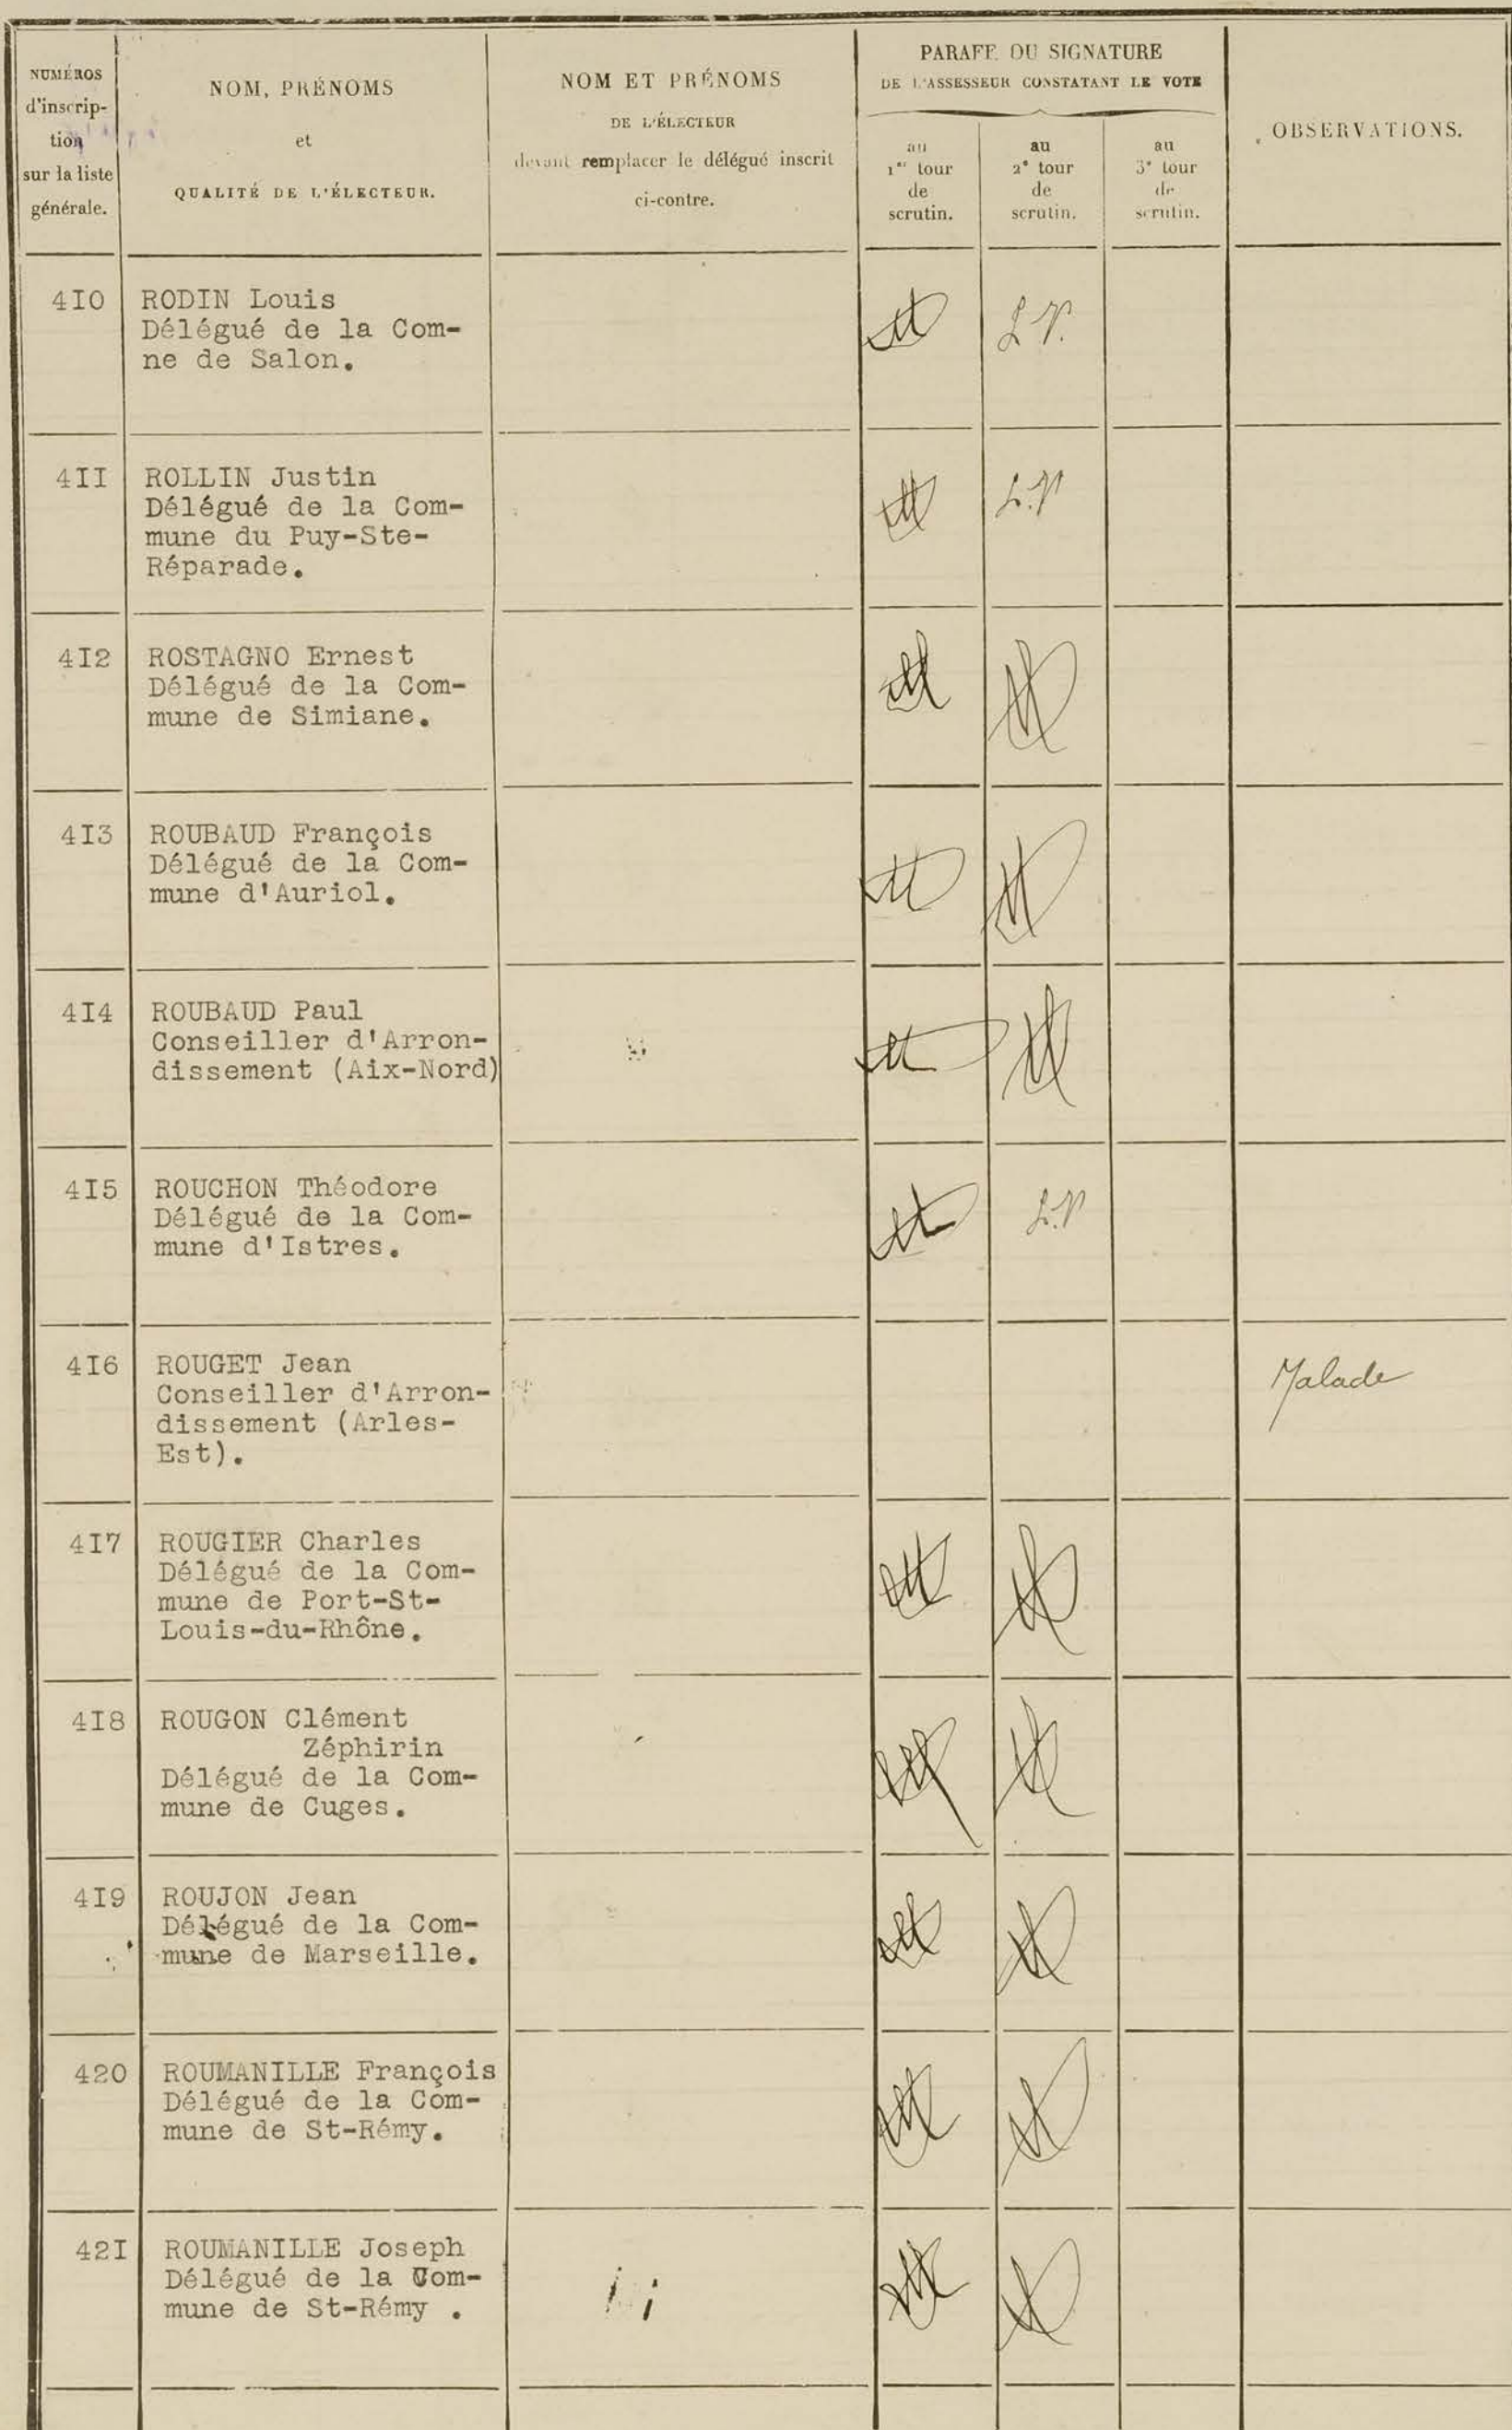 NUMÉROS
d'inscrip-
tion
sur la liste
générale.
NOM, PRÉNOMS
et
QUALITÉ DE L'ÉLECTEUR.
NOM ET PRÉNOMS
DE L'ÉLECTEUR
devant remplacer le délégué inscrit
ci-contre.
PARAFE OU SIGNATURE
DE L'ASSESSEUR CONSTATANT LE VOTE
au
1er tour
de
scrutin.
au
2e tour
de
scrutin.
au
3e tour
de
scrutin.
OBSERVATIONS.
4I0
RODIN Louis
Délégué de la Com-
ne de Salon.
L.V.
4II
ROLLIN Justin
Délégué de la Com-
mune du Puy-Ste-
Réparade.
L.V
4I2
ROSTAGNO Ernest
Délégué de la Com-
mune de Simiane.
4I3
ROUBAUD François
Délégué de la Com-
mune d'Auriol.
4I4
ROUBAUD Paul
Conseiller d'Arron-
dissement (Aix-Nord)
4I5
ROUCHON Théodore
Délégué de la Com-
mune d'Istres.
L.V
4I6
ROUGET Jean
Conseiller d'Arron-
dissement (Arles-
Est).
Malade
4I7
ROUGIER Charles
Délégué de la Com-
mune de Port-St-
Louis-du-Rhône.
4I8
ROUGON Clément
Zéphirin
Délégué de la Com-
mune de Cuges.
4I9
ROUJON Jean
Délégué de la Com-
mune de Marseille.
420
ROUMANILLE François
Délégué de la Com-
mune de St-Rémy.
42I
ROUMANILLE Joseph
Délégué de la Com-
mune de St-Rémy .